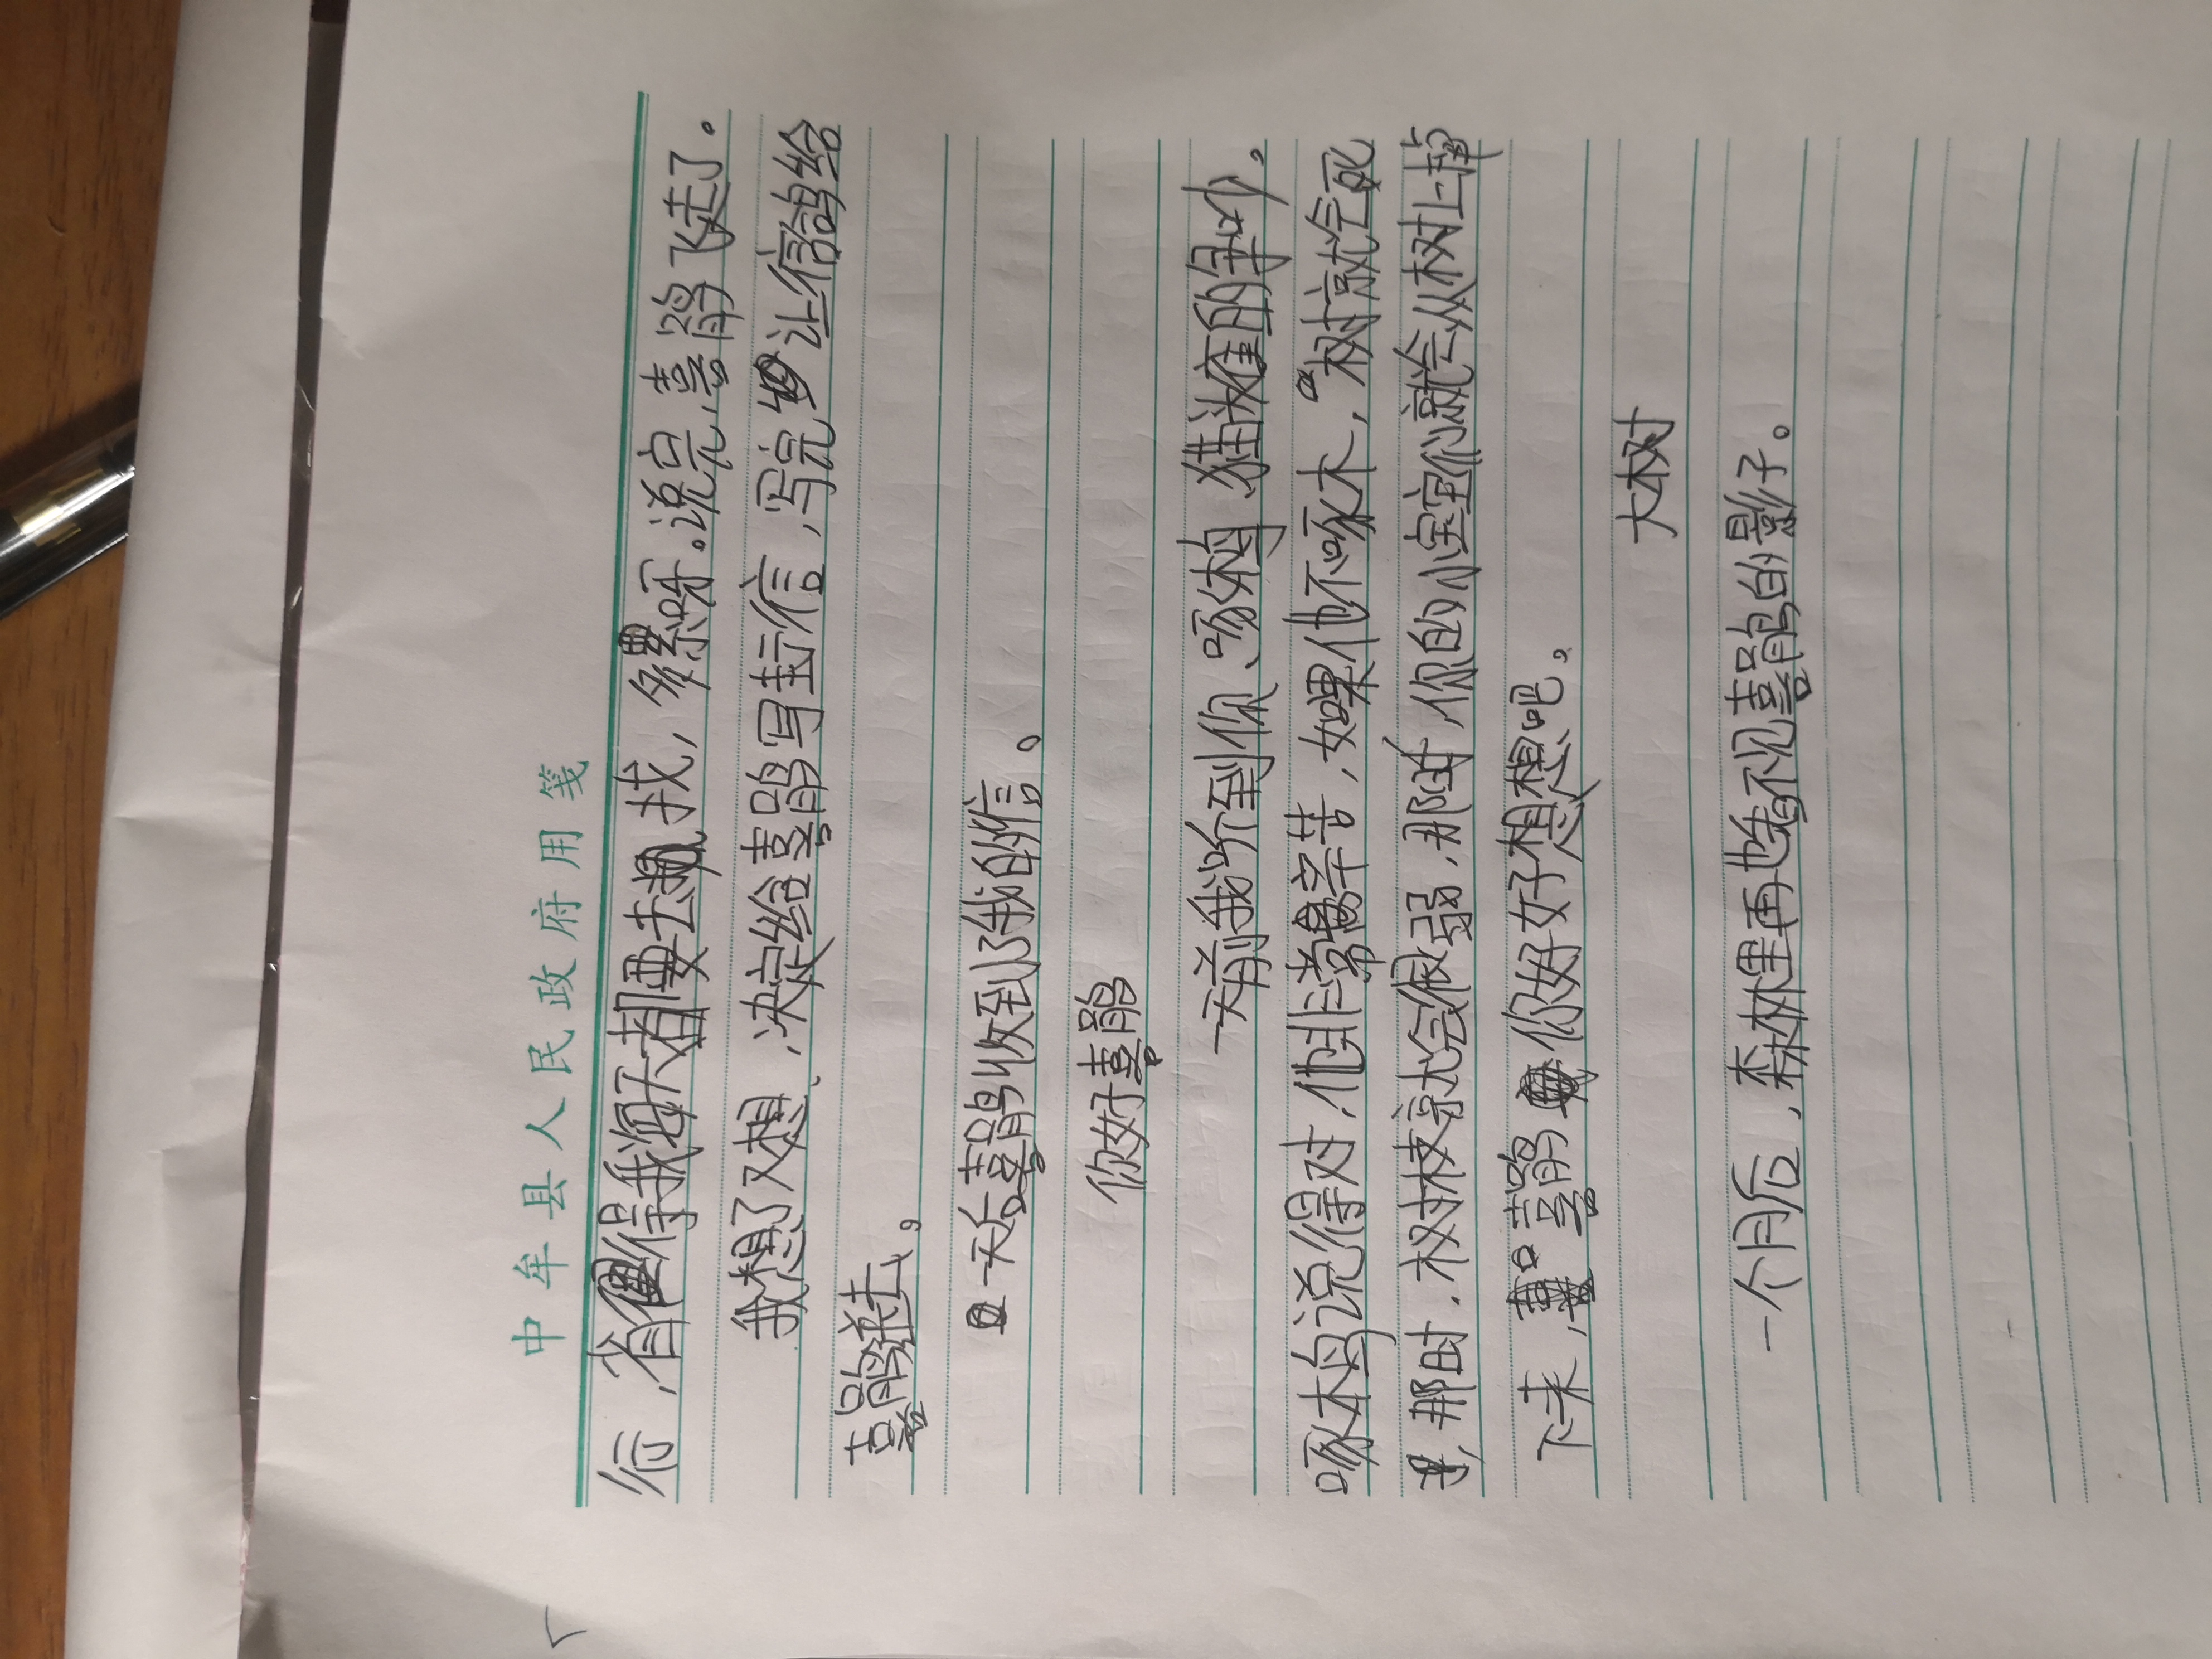 中牟县人民政府用笺
行,省得我每天都要去找,多累呀。说完,喜鹊飞走了.
我想了又想、决定给喜鹊写封信,写完让信鸽给
喜鹊送去。
一天后喜鹊收到了我的信。
你好喜鹊
一天前我听到你、啄木鸟、猫头鹰的争吵。
啄木鸟说得对,他非常辛苦,如果他不啄木,树就会死
那时,树枝就会很弱,那时你的小宝宝们就会从树上掉
下来,喜鹊你好好想想吧。
大树
一个月后,森林里再也看不见喜鹊的影子。